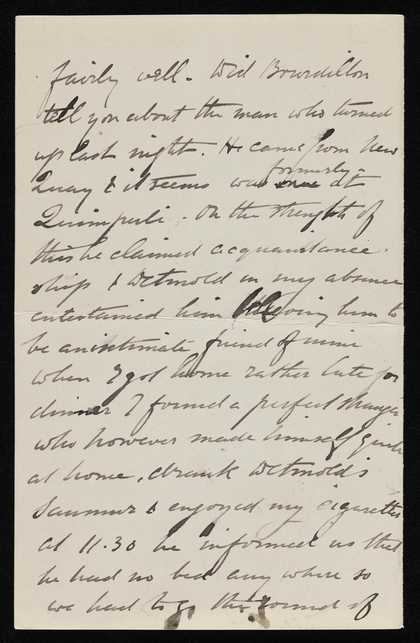 fairly well. Did Bourdillon
tell you about the man who turned
up last night. He came from New
formerly
Quay & it seems was once at
Quimperlé. On the strength of
this he claimed acquaintance-
ship & Detmold in my absence
entertained him believing him to
be an intimate friend of mine
when I got home rather late for
dinner I found a perfect stranger
who however made himself quite
at home, drank Detmold's
Saumur & enjoyed my cigarettes
at 11.30 he informed us that
he had no bed any where so
we had to go the round of